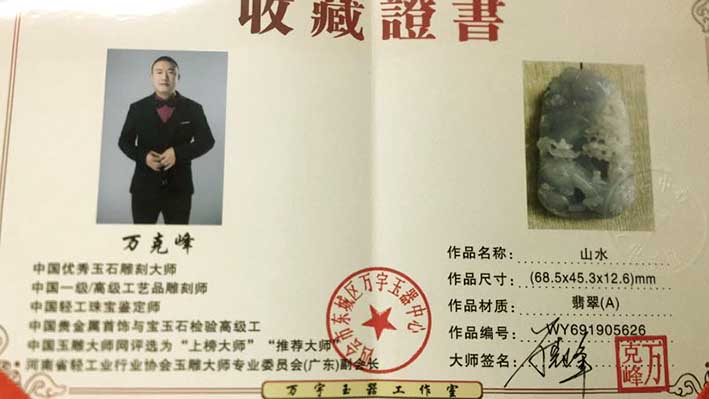 收藏證書
万克峰
中国优秀玉石雕刻大师
中国一级/高级工艺品雕刻师
中国轻工珠宝鉴定师
中国贵金属首饰与宝玉石检验高级工
中国玉雕大师网评选为“上榜大师”“推荐大师”
河南省轻工业行业协会玉雕大师专业委员会(广东)副会长
作品名称: 山水
作品尺寸: (68.5x45.3x12.6)mm
作品材质: 翡翠(A)
作品编号: WY691905626
大师签名:
万克峰
四会市东城区万宇玉器中心
万宇玉器工作室